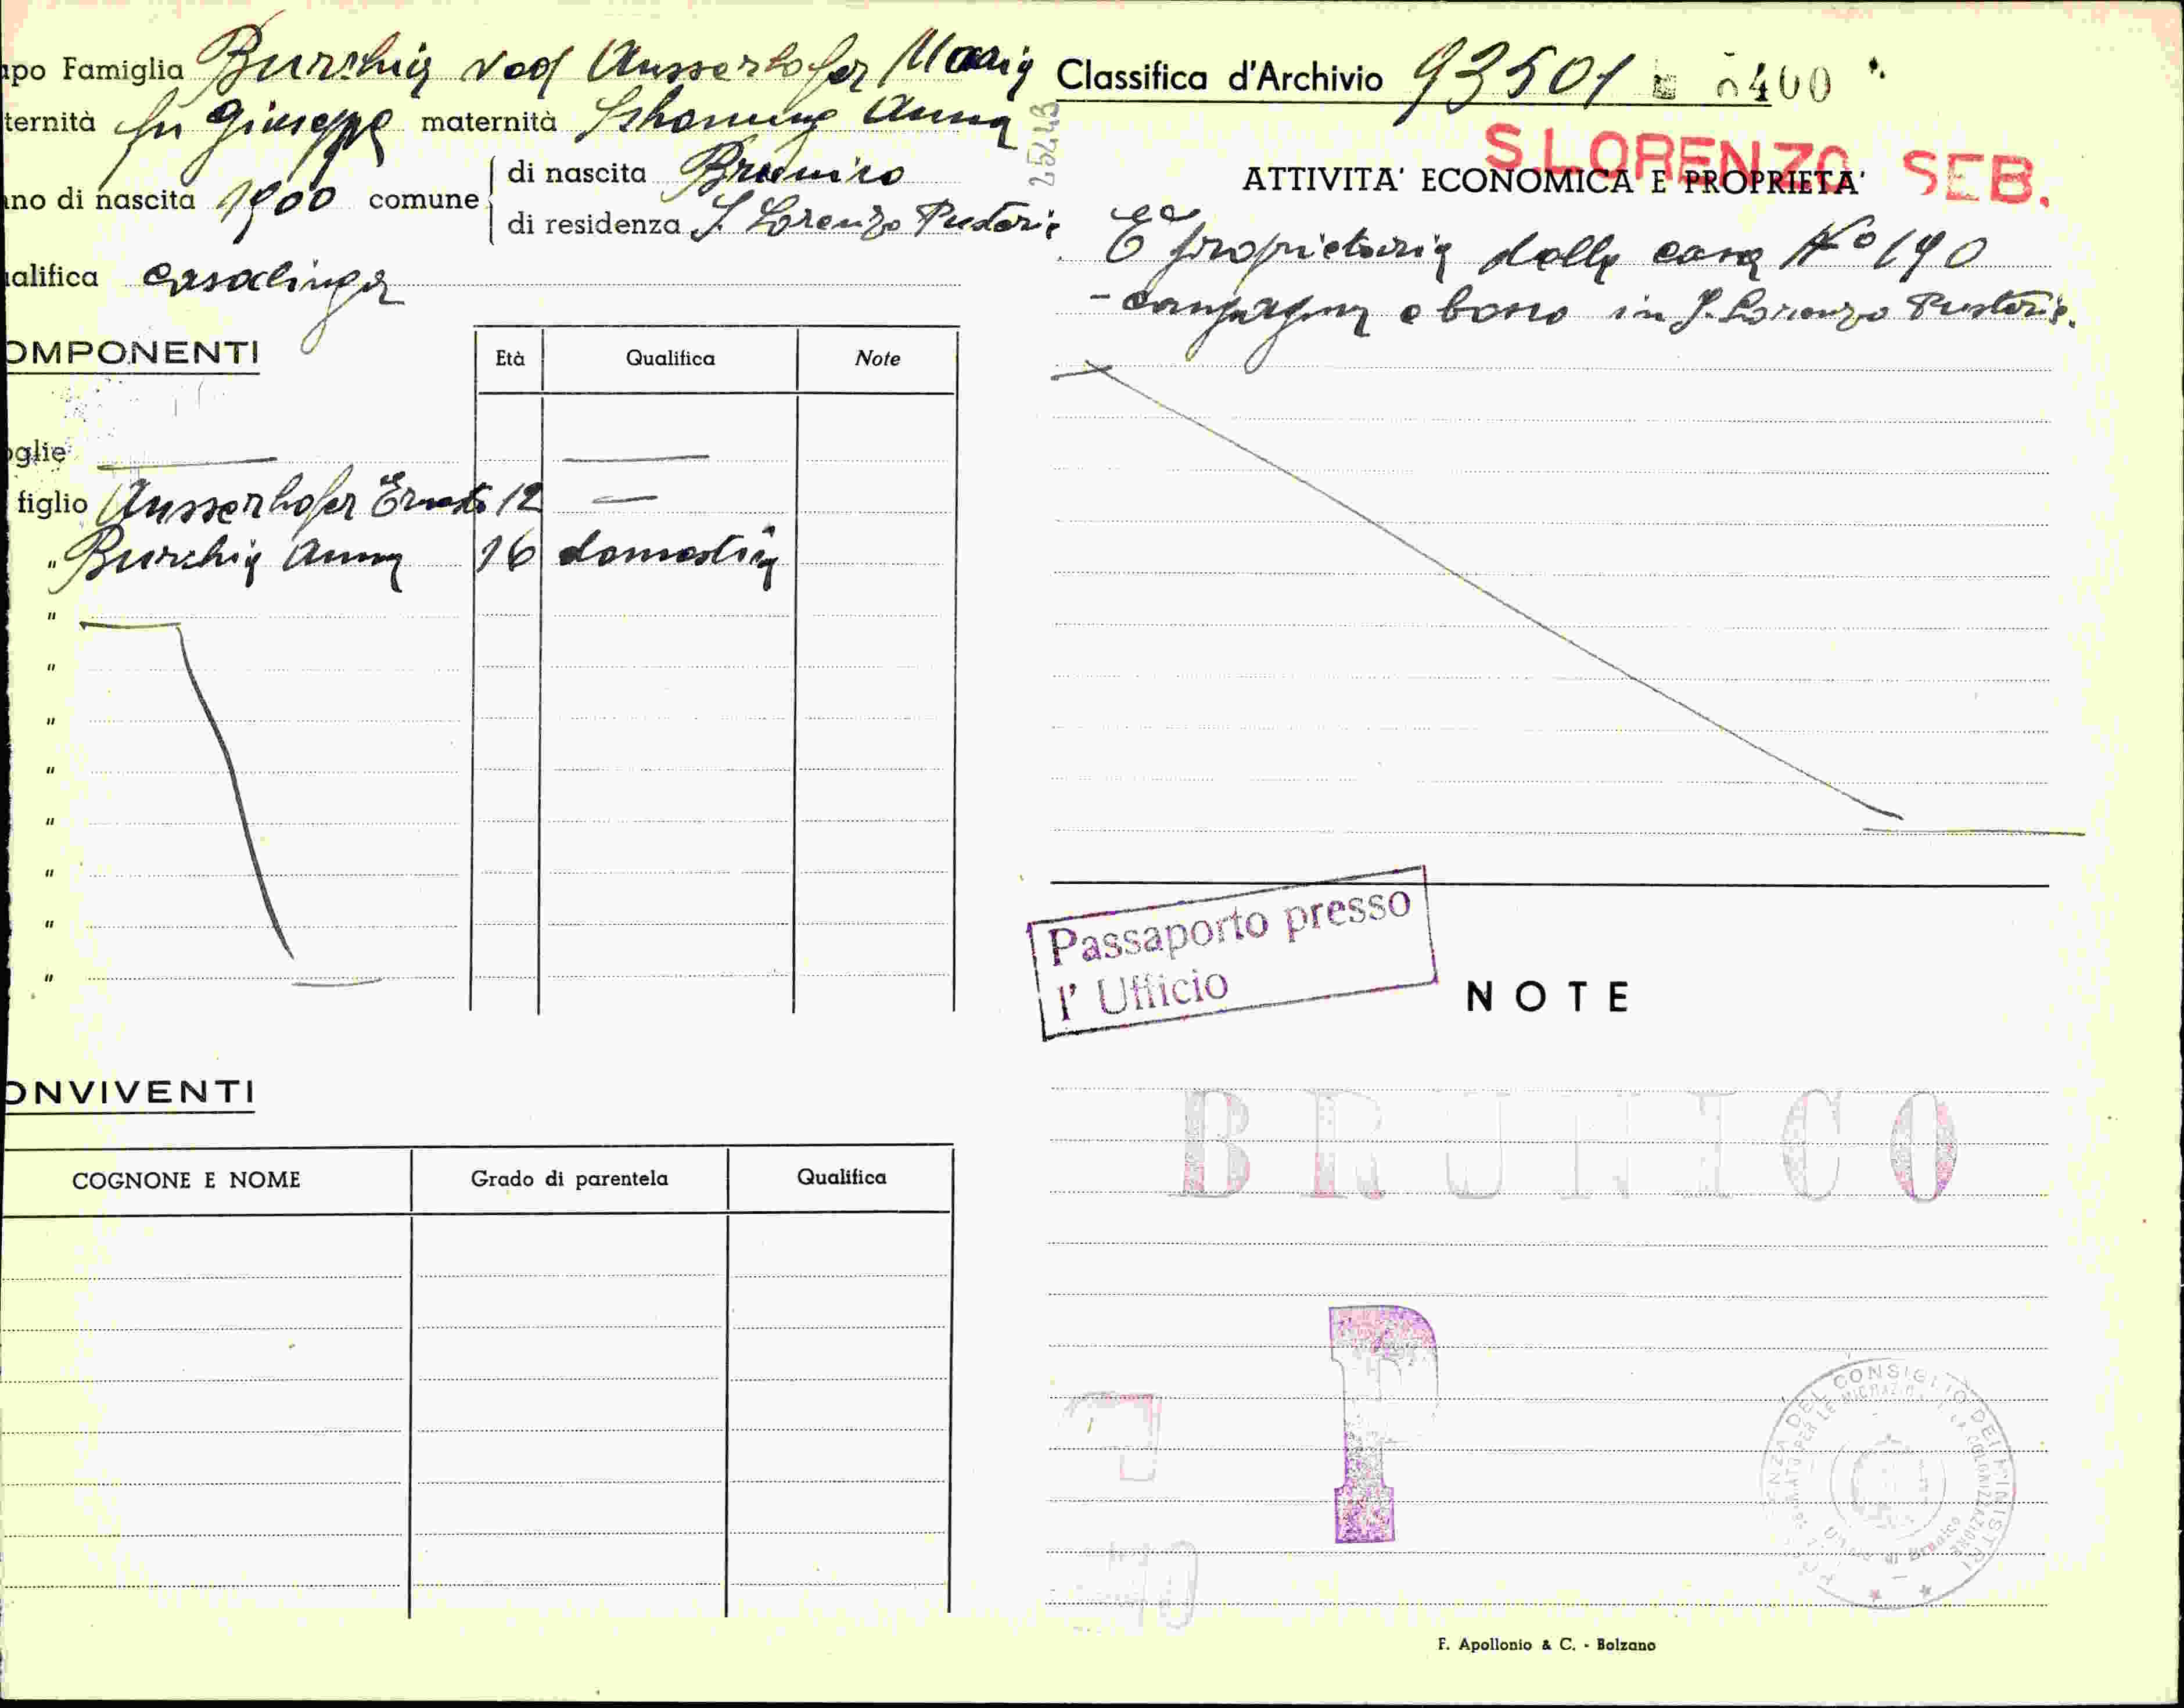 apo Famiglia Burchia ved Ausserhofer Maria
ternità fu Giuseppe maternità Schonung Anna
nno di nascita 1900 comune di nascita Brunico
di residenza S. Lorenzo Pusteria
ualifica casalinga
OMPONENTI
Età Qualifica Note
oglie
figlio Ausserhofer Ernesto 12
" Burchia Anna 16 domestica
"
"
"
"
"
"
"
"
ONVIVENTI
COGNONE E NOME Grado di parentela Qualifica
25443
Classifica d'Archivio 93501 8400
S.LORENZO SEB.
ATTIVITA' ECONOMICA E PROPRIETA'
E' proprietaria della casa No 190
- campagna e bosco in S. Lorenzo Pusteria.
Passaporto presso
l' Ufficio
NOTE
BRUNICO
P
DEL CONSIGLIO DEI MINISTRI
F. Apollonio & C. - Bolzano